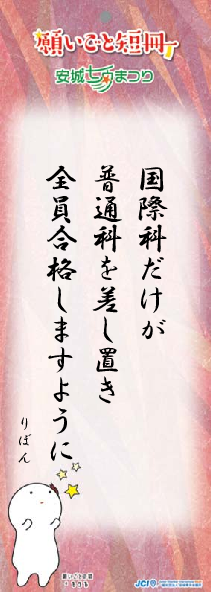 願いごと短冊
安城七夕まつり
国際科だけが
普通科を差し置き
全員合格しますように
りぼん
JCI